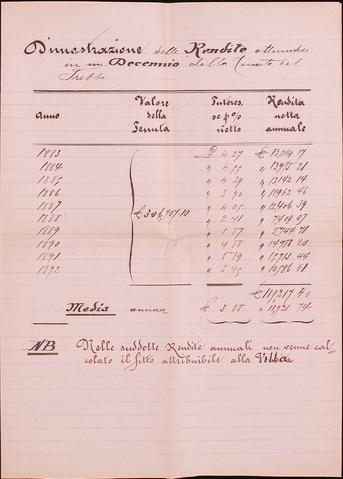 Dimostrazione delle Rendite ottenutesi
in un Decennio dalla Tenuta del
Trebbo
Anno Valore della Tenuta Interes. se p% netto Rendita netta annuale
1883 £ 4 27 £ 13,094 17
1884 " 4 55 " 13,925 21
1885 " 4 29 " 13,142 14
1886 " 3 90 " 11,962 46
1887 £ 306,707.10 " 4 05 " 12,406 39
1888 " 2 41 " 7,409 07
1889 " 1 87 " 5,744 71
1890 " 4 88 " 14,978 20
1891 " 5 19 " 15,913 44
1892 " 3 45 " 10,586 81
Media annua £ 3 88 " 11,921 74
NB Nelle suddette Rendite annuali non venne cal-
colato il fitto attribuibile alla Villa